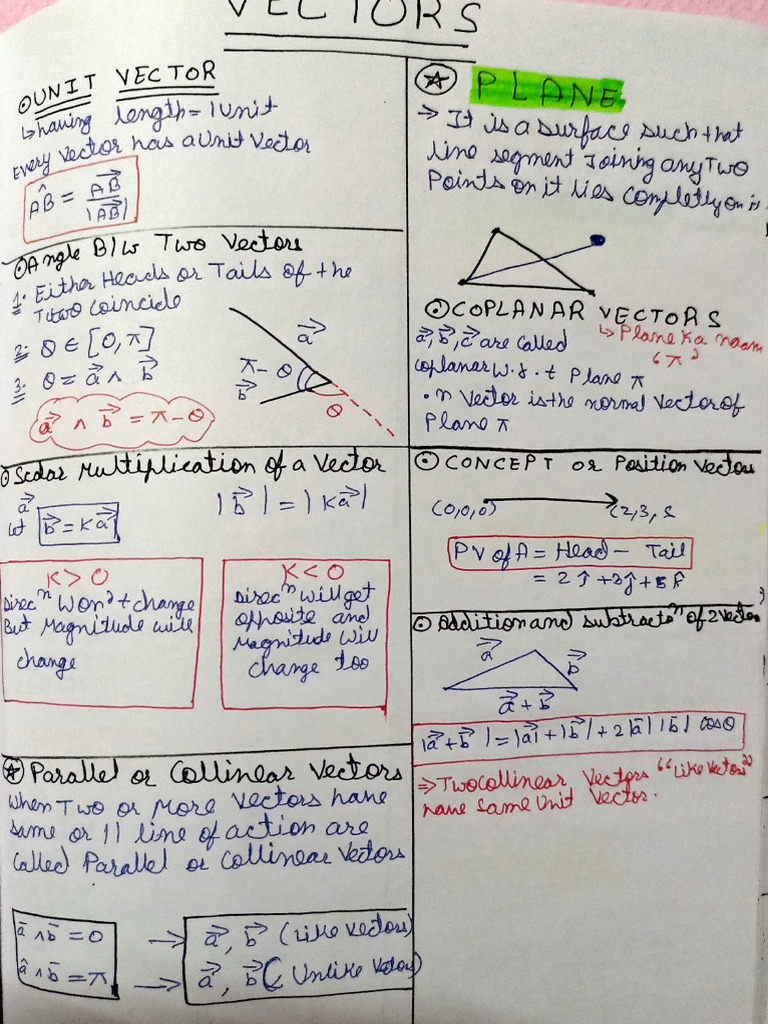 VECTORS
⊙ UNIT VECTOR
↳ having length = 1 Unit
Every Vector has a Unit Vector
AB̂ = AB⃗ / |AB⃗|
⊙ Angle B/w Two Vectors
1. Either Heads or Tails of the
Two coincide
2. θ ∈ [0, π]
3. θ = a⃗ ∧ b⃗
a⃗ ∧ b⃗ = π - θ
a⃗
π - θ
b⃗
θ
⊙ Scalar Multiplication of a Vector
a⃗
let b⃗ = Ka⃗
|b⃗| = |Ka⃗|
K > 0
Direcⁿ Won't change
But Magnitude will
change
K < 0
Direcⁿ will get
opposite and
Magnitude Will
change too
☆ Parallel or Collinear Vectors
When Two or More Vectors have
same or || line of action are
called Parallel or Collinear Vectors
a̅ ∧ b̅ = 0 → a⃗, b⃗ (Like Vectors)
â ∧ b̅ = π → a⃗, b⃗ (Unlike Vectors)
☆ PLANE
→ It is a surface such that
line segment Joining any Two
Points on it lies completly on it
⊙ COPLANAR VECTORS
↳ Plane ka naam
'π'
a⃗, b⃗, c⃗ are called
coplanar w.r.t Plane π
• n Vector is the normal Vector of
Plane π
⊙ CONCEPT or Position Vectors
(0,0,0)
(2,3,5
PV of A = Head - Tail
= 2ĵ + 3ĵ + 5k̂
⊙ Addition and subtractoⁿ of 2 Vectors
a⃗
b⃗
a⃗ + b⃗
|a⃗ + b⃗| = |a⃗| + |b⃗| + 2|a̅| |b̅| cosθ
⇒ Two collinear Vectors "Like Vectors"
have same Unit Vector.